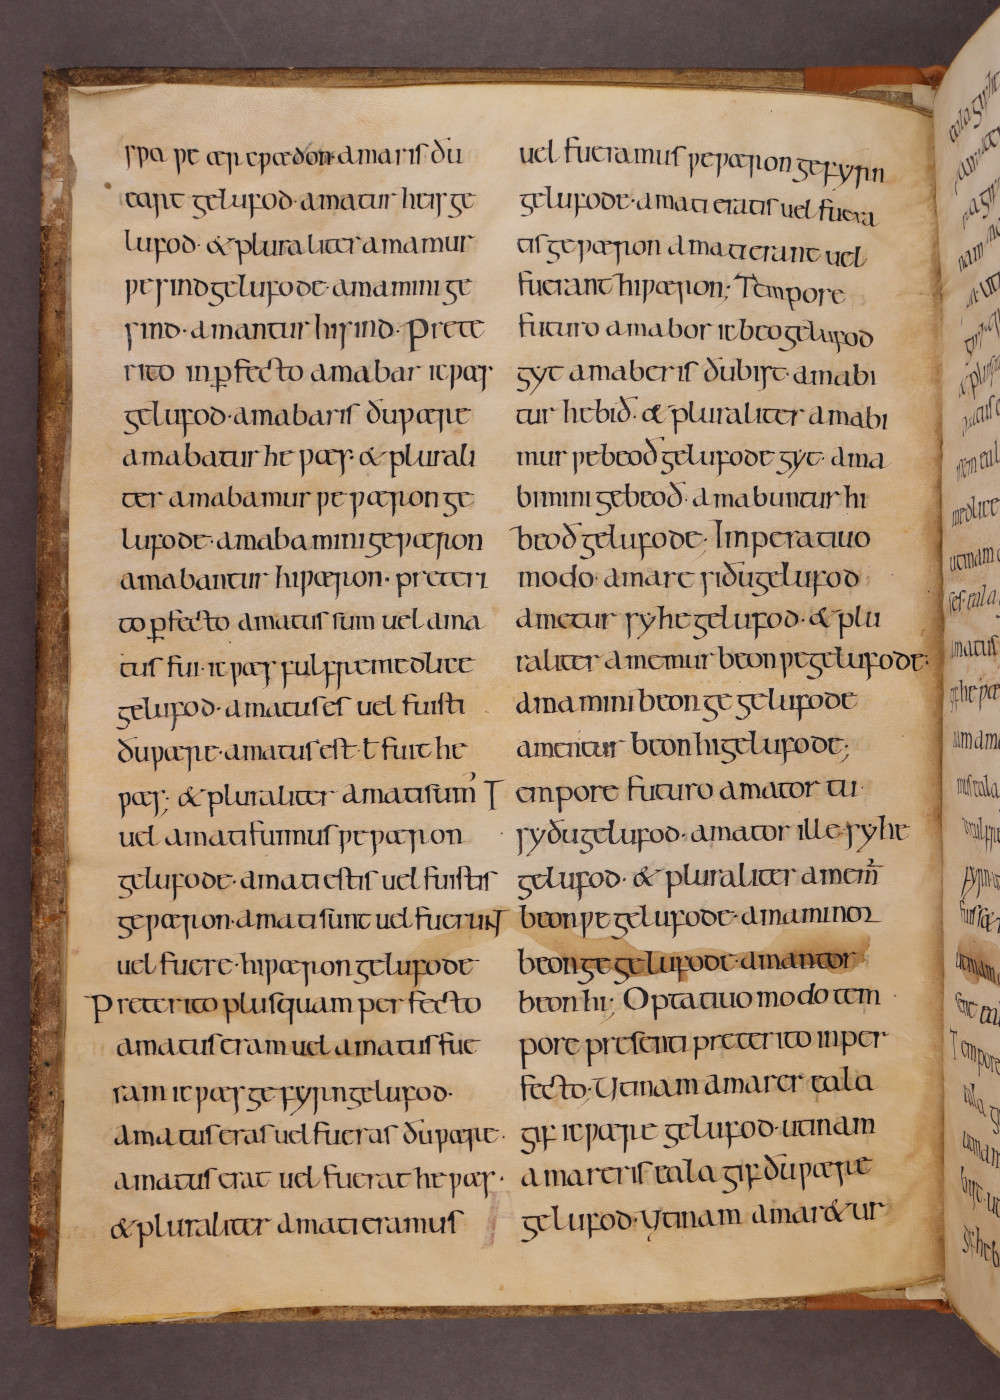 spa ƿe ær cƿædon· amaris ðu
eart gelufod· amatur he is ge
lufod· & pluraliter amamur
ƿe sind gelufode· amamini ge
sind· amantur hi sind· Prete
rito inꝑfecto amabar ic ƿæs
gelufod· amabaris ðu ƿære
amabatur he ƿæs· & plurali
ter amabamur ƿe ƿæron ge
lufode· amabamini ge ƿæron
amabantur hi ƿæron· preteri
to ꝑfecto amatus sum uel ama
tus fui· ic ƿæs fulfremedlice
gelufod· amatus es uel fuisti
ðu ƿære· amatus est· ł fuit he
ƿæs; & pluraliter amati sum̄
uel amati fuimus ƿe ƿæron
gelufode· amati estis uel fuistis
ge ƿæron· amati sunt uel fuerunt
uel fuere· hi ƿæron gelufode
Preterito plusquam perfecto
amatus eram uel amatus fue
ram ic ƿæs gefyrn gelufod·
amatus eras uel fueras ðu ƿære·
amatus erat uel fuerat he ƿæs·
& pluraliter amati eramus
uel fueramus ƿe ƿæron gefyrn
gelufode· amati eratis uel fuera
tis ge ƿæron amati erant uel
fuerant hi ƿæron; Tempore
futuro amabor ic beo gelufod
gyt amaberis ðu bist· amabi
tur he bið· & pluraliter amabi
mur ƿe beoð gelufode gyt· ama
bimini ge beoð· amabuntur hi
beoð gelufode· Imperatiuo
modo· amare si ðu gelufod
ametur sy he gelufod· & plu
raliter amemur beon ƿe gelufode·
amamini beon ge gelufode
amentur beon hi gelufode;
Tempore futuro amator tu·
sy ðu gelufod· amator ille sy he
gelufod· & pluraliter amem̄
beon ƿe gelufode· amaminor
beon ge gelufode· amantor
beon hi; Optatiuo modo tem
pore presenti preterito inper
fecto; Utinam amarer eala
gif ic ƿære gelufod· utinam
amareris eala gif ðu ƿære
gelufod· Utinam amar&ur